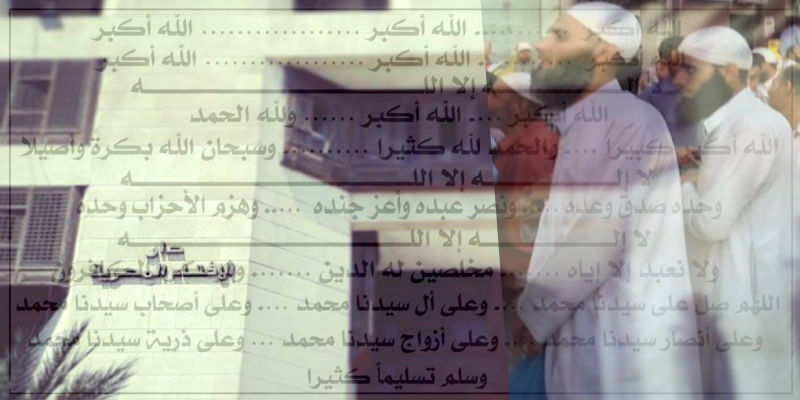 الله أكبر .... الله أكبر .................. الله أكبر
الله أكبر .... الله أكبر .................. الله أكبر
لا إلـــــــــه إلا اللـــــــــــــــــــــــــــــه
الله أكبر .... الله أكبر ...... ولله الحمد
الله أكبر كبيرا .... والحمد لله كثيرا .......... وسبحان الله بكرة وأصيلا
لا إلـــــــــه إلا اللـــــــــــــــــــــــــــــه
وحده صدق وعده ..... ونصر عبده وأعز جنده ..... وهزم الأحزاب وحده
لا إلـــــــــه إلا اللـــــــــــــــــــــــــــــه
ولا نعبد إلا إياه ....... مخلصين له الدين ....... الكافرون
اللهم صل على سيدنا محمد .... وعلى آل سيدنا محمد .... وعلى أصحاب سيدنا محمد
وعلى أنصار سيدنا محمد .... وعلى أزواج سيدنا محمد ... وعلى ذرية سيدنا محمد
وسلم تسليماً كثيرا
دار
الإفتاء المصرية